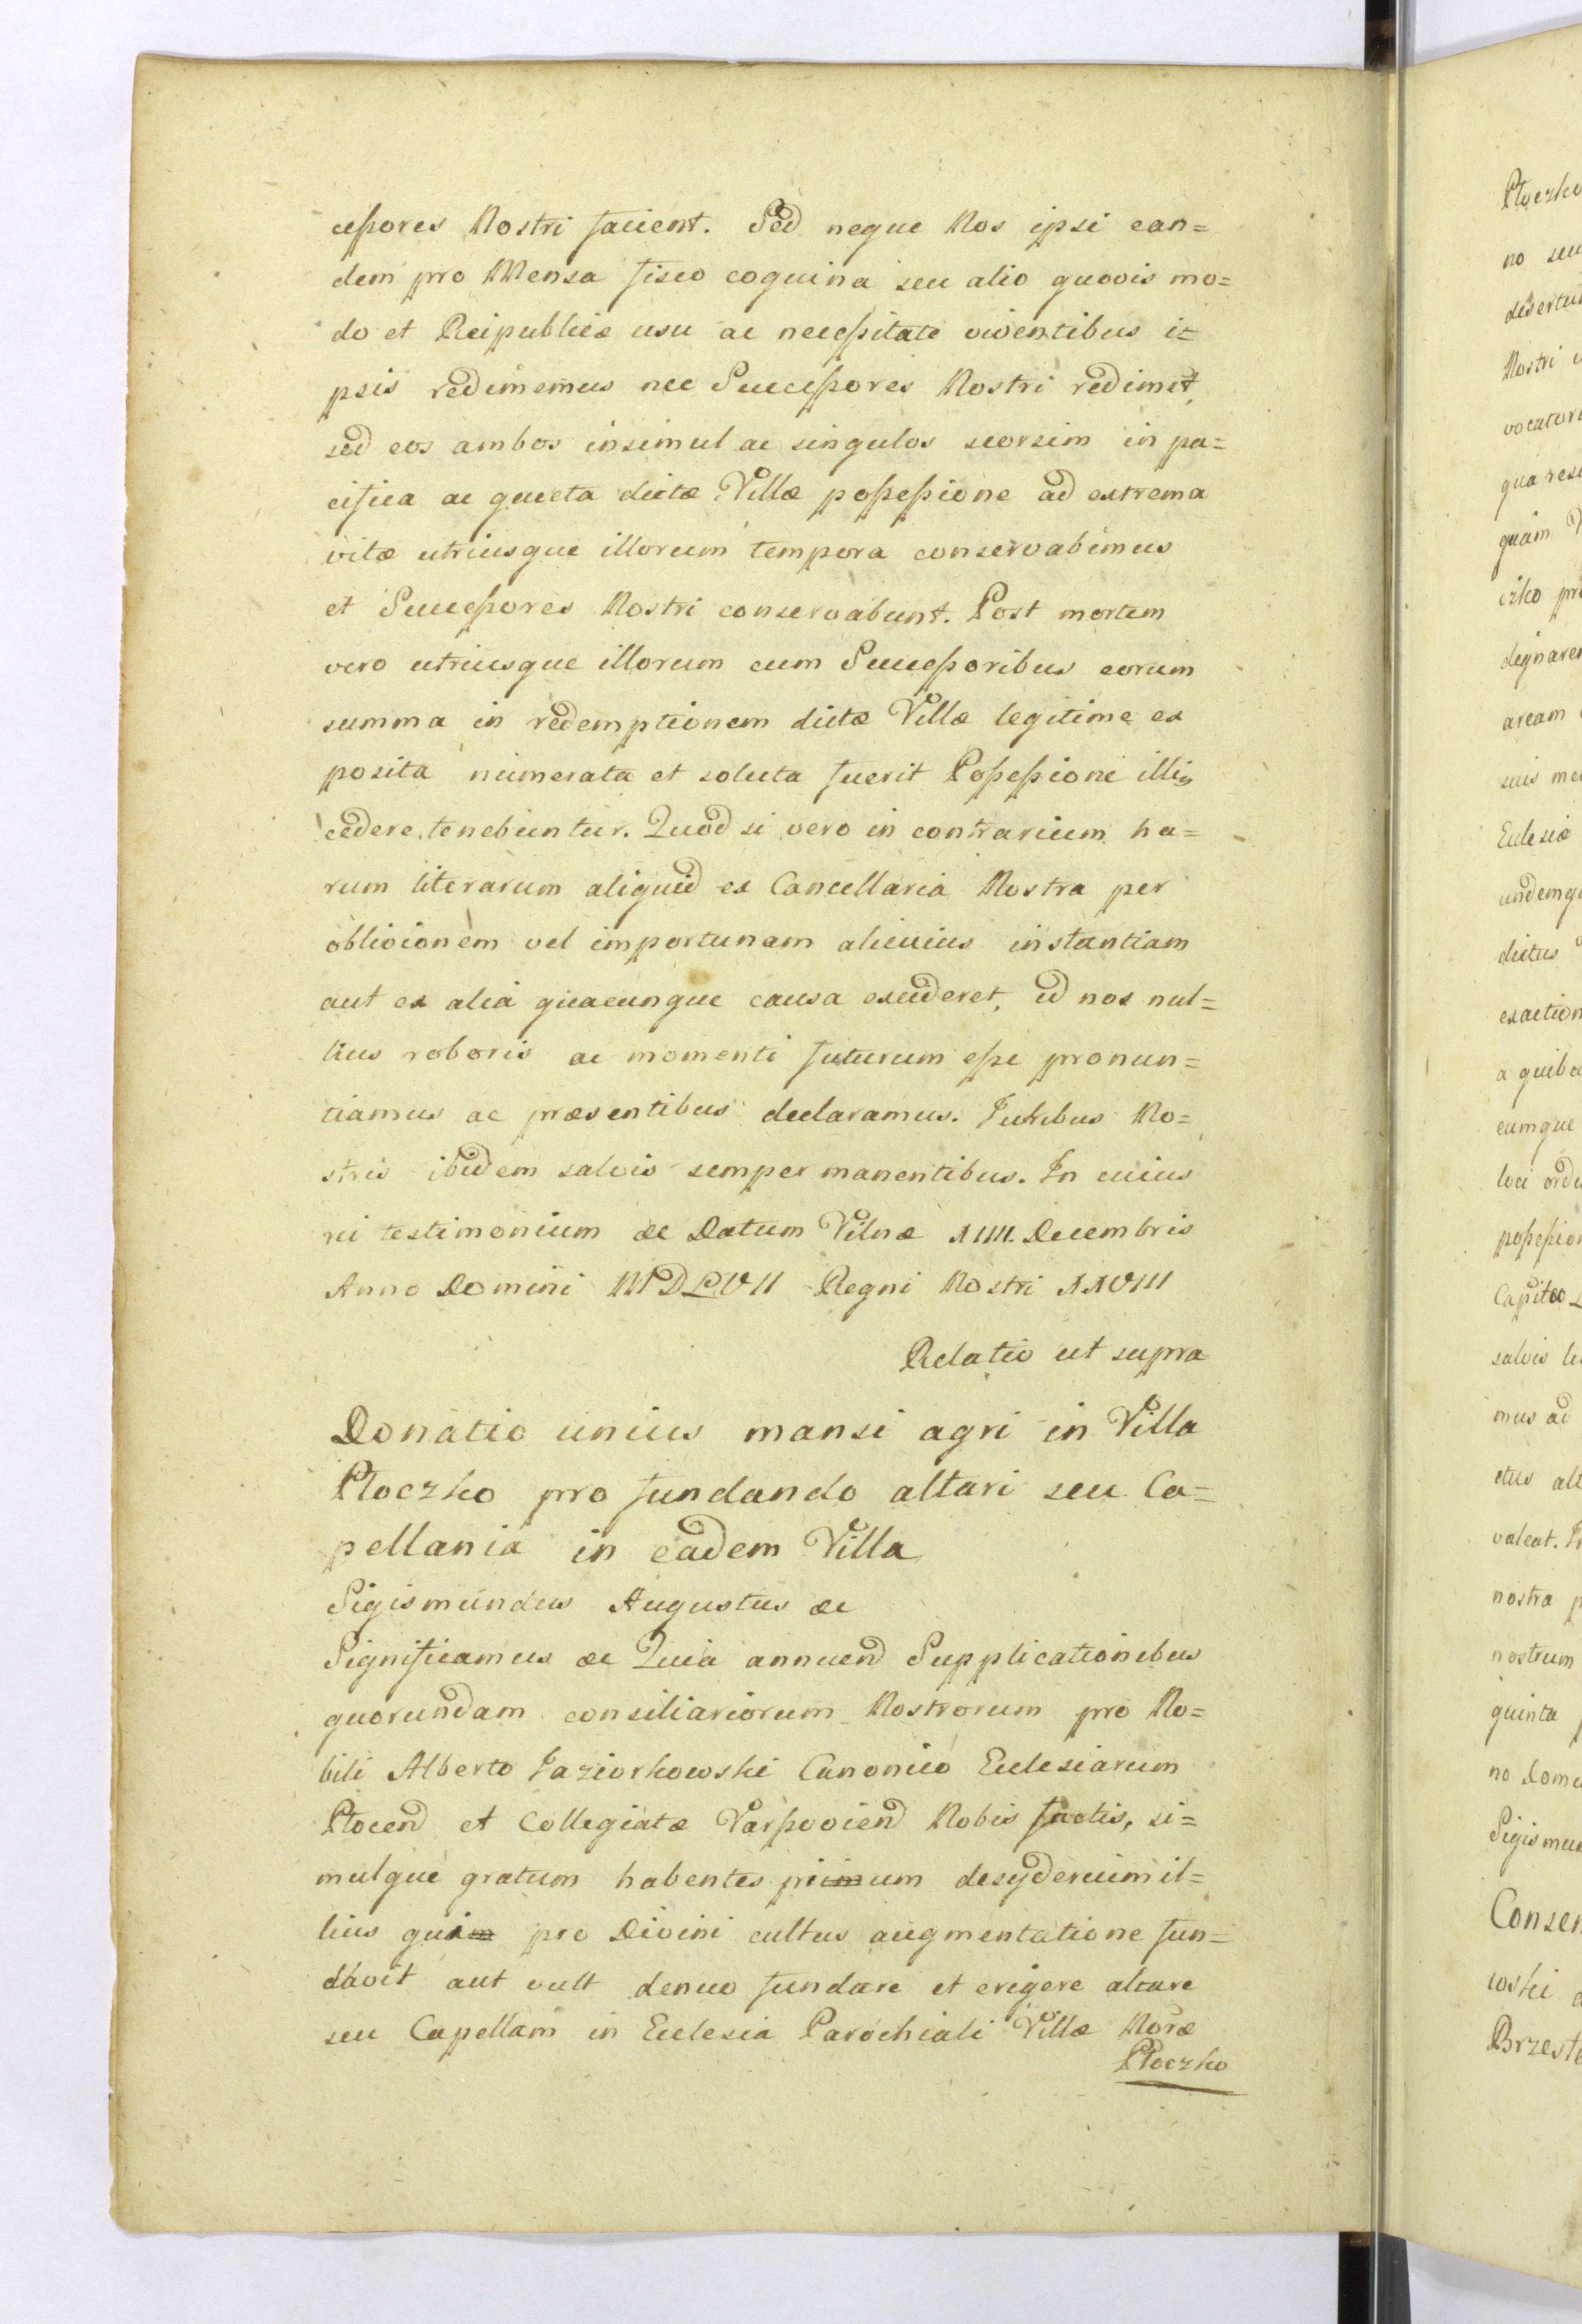 cessores Nostri facient. Sed neque Nos ipsi ean=
dem pro Mensa fisco coquina seu alio quovis mo=
do et Reipublicæ usu ac necessitate viventibus i=
psis redimemus nec Successores Nostri rediment,
sed eos ambos insimul ac singulos seorsim in pa=
cifica ac queeta dictæ Villæ possessione ad extrema
vitæ utriusque illorum tempora conservabimus
et Successores Nostri conservabunt. Post mortem
vero utriusque illorum cum Successoribus eorum
summa in redemptionem dictæ Villæ legitime ex
posita numerata et soluta fuerit Possessioni illis
cedere tenebuntur. Quod si vero in contrarium ha=
rum literarum aliquid ex Cancellaria Nostra per
oblivionem vel importunam alicuius instantiam
aut ex alia quacunque causa excideret, id nos nul=
lius roboris ac momenti futurum esse pronun=
tiamus ac præsentibus declaramus. Juribus No=
stris ibidem salvis semper manentibus. In cuius
rei testimonium &c Datum Vilnæ XIIII. Decembris
Anno Domini MDLVII Regni Nostri XXVIII
Relatio ut supra
Donatio unius mansi agri in Villa
Ploczko pro fundando altari seu Ca=
pellania in eadem Villa
Sigismundus Augustus &c
Significamus &c Quia annuend Supplicationibus
quorundam consiliariorum Nostrorum pro No=
bili Alberto Jaziorkowski Canonico Ecclesiarum
Plocend et Collegiatæ Varssoviend Nobis factis, si=
mulque gratum habentes pium desyderium il=
lius qui pro Divini cultus augmentatione fun=
davit aut vult denuo fundare et erigere altare
seu Capellam in Ecclesia Parochiali Villæ Noræ
Ploczko
Ploczko
no seu
disertu
Nostri
vocator
qua res
quam
czko pr
dignare
aream
suis me
Eccle siæ
undemq
dictus
exaction
a quib
cumque
loci ord
possession
Capit
salvis
mus ad
ctus alt
valeat.
nostra
nostrum
quinta
no Dom
Sigismun
Consen
wski
Brzest